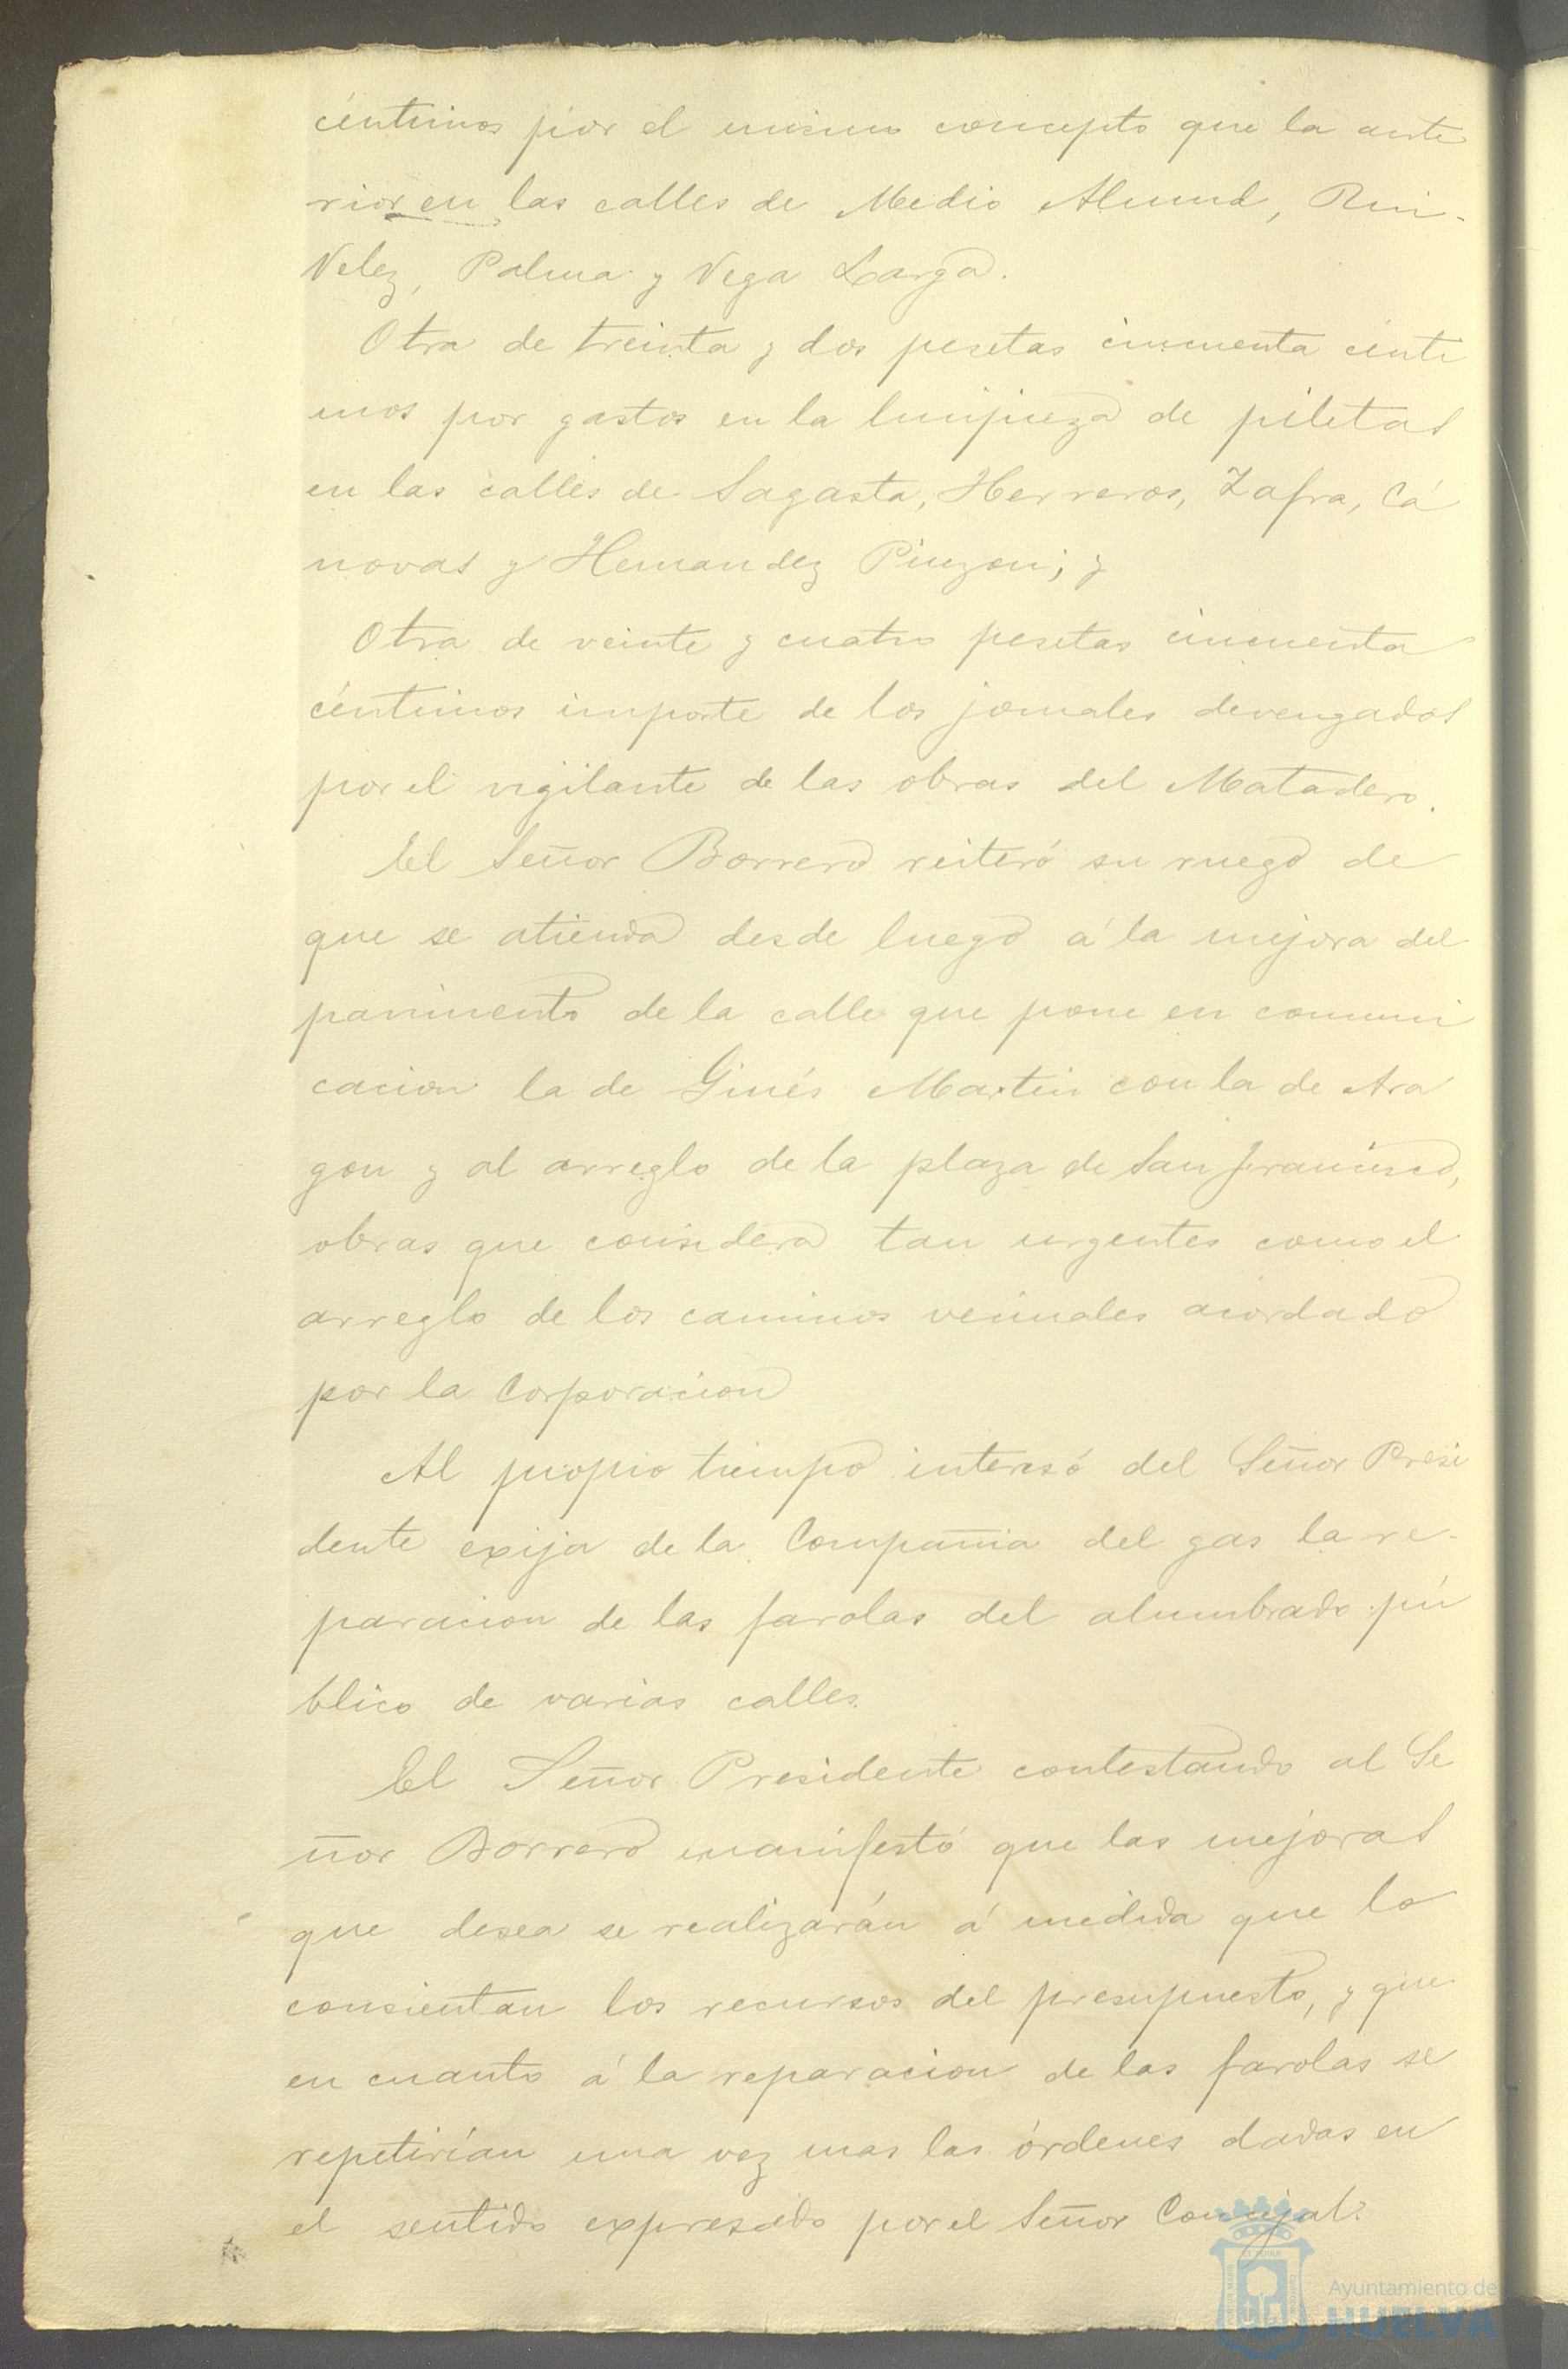 céntimos por el mismo concepto que la ante
rior en las calles de Medio Almud, Rui-
Velez, Palma y Vega Larga.
Otra de treinta y dos pesetas cincuenta cénti
mos por gastos en la limpieza de piletas
en las calles de Sagasta, Herreros, Zafra, Cá
novas y Hernandez Pinzon; y
Otra de veinte y cuatro pesetas cincuenta
céntimos importe de los jornales devengados
por el vigilante de las obras del Matadero.
El Señor Borrero reiteró su ruego de
que se atienda desde luego á la mejora del
pavimento de la calle que pone en comuni
cacion la de Ginés Martin con la de Ara
gon y al arreglo de la plaza de San Francisco,
obras que considera tan urgentes como el
arreglo de los caminos vecinales acordado
por la Corporacion
Al propio tiempo interesó del Señor Presi
dente exija de la Compañia del gas la re-
paracion de las farolas del alumbrado pú
blico de varias calles.
El Señor Presidente contestando al Se
ñor Borrero manifestó que las mejoras
que desea se realizarán á medida que lo
consientan los recursos del presupuesto, y que
en cuanto á la reparacion de las farolas se
repetirían una vez mas las órdenes dadas en
el sentido expresado por el Señor Concejal.
Ayuntamiento de
HUELVA